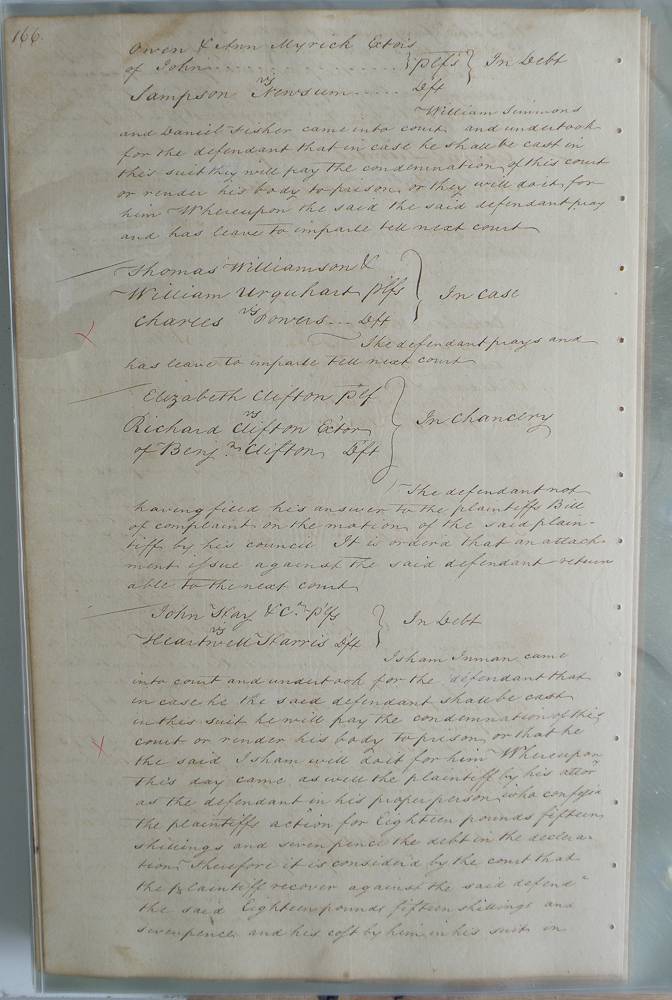 166.
Owen & Ann Myrick Extors
of John . . . . . . . . . . . . . . . . . . . . } plfs } In Debt
vs
Sampson Newsum . . . . . Dft
William Simmons
and Daniel Fisher came into court and undertook
for the defendant that in case he shall be cast in
this suit they will pay the condemnation of this court
or render his body to prison or they will do it for
him Whereupon the said the said defendant pray
and has leave to imparle till next court
Thomas Williamson &
William Urquhart plfs } In Case
vs
Charles Powers . . . Dft
The defendant prays and
has leave to imparle till next court
Elizabeth Clifton plf
vs
Richard Clifton Extor } In Chancery
of Benjn Clifton Dft
The defendant not
having filed his answer to the plaintiffs Bill
of complaint on the motion of the said plain-
tiff by his council It is order'd that an attach-
ment issue against the said defendant return
able to the next court
John Hay & Co plfs
vs } In Debt
Heartwell Harris Dft
Isham Inman came
into court and undertook for the defendant that
in case he the said defendant shall be cast
in this suit he will pay the condemnation of this
court or render his body to prison or that he
the said Isham will do it for him Whereupon
this day came as well the plaintiff by his attor
as the defendant in his proper person who confess
the plaintiffs action for Eighteen pounds fifteen
shillings and seven pence the debt in the declera-
tion Therefore it is consider'd by the court that
the plaintiff recover against the said defendt
the said Eighteen pounds fifteen shillings and
sevenpence and his cost by him in his suit in